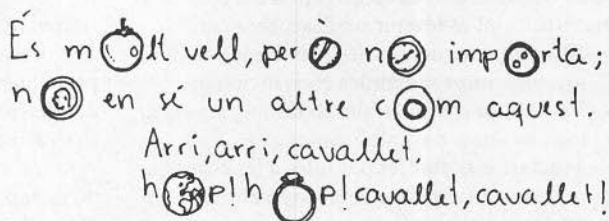 És molt vell, però no importa;
no en sé un altre com aquest.
Arri, arri, cavallet,
hop! hop! cavallet, cavallet!